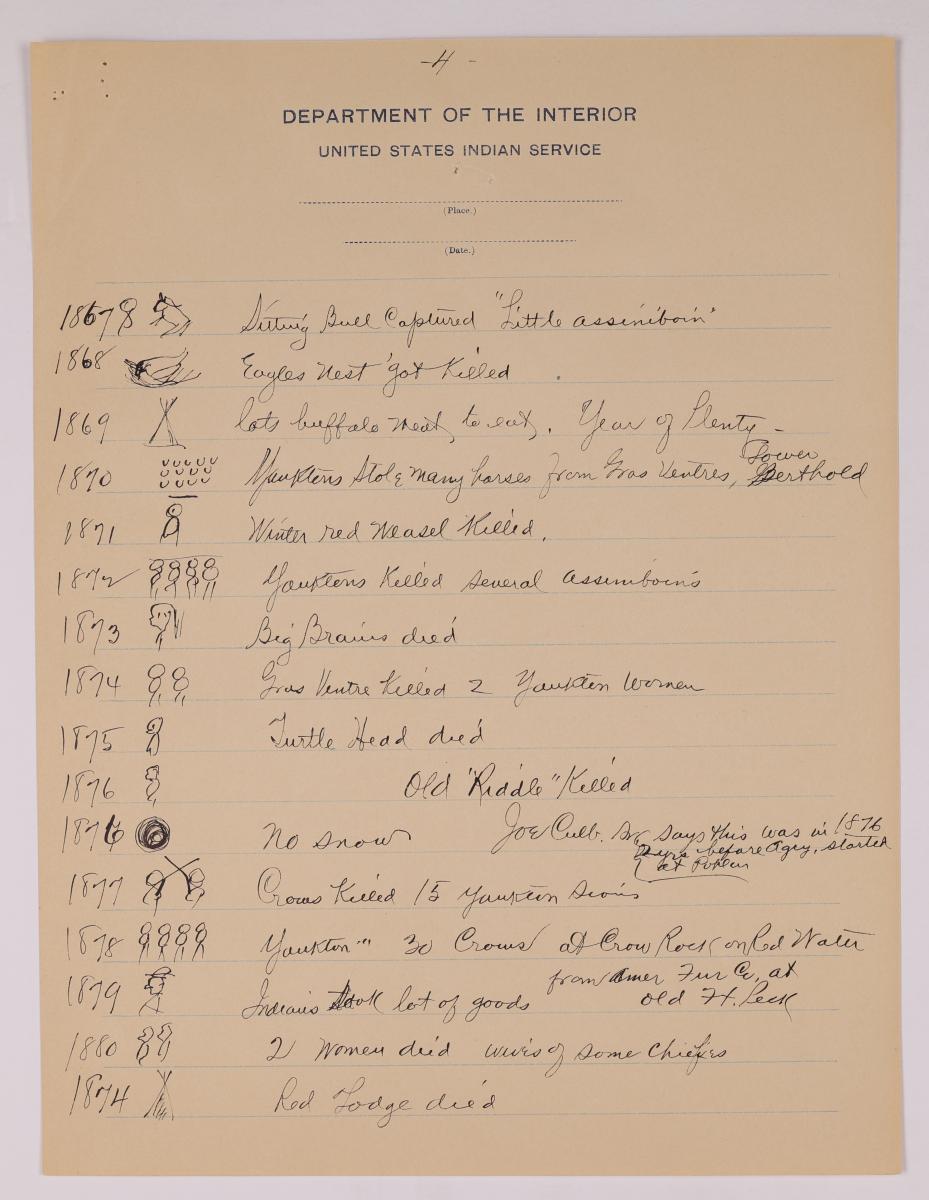 -4-
DEPARTMENT OF THE INTERIOR
UNITED STATES INDIAN SERVICE
(Place.)
(Date.)
1867 Sitting Bull Captured "Little assiniboin"
1868 Eagles Nest got Killed
1869 lots buffalo meat, to eat. Year of Plenty -
Tower
1870 Yanktons Stole many horses from Gros Ventres, Berthold
1871 Winter red Weasel Killed.
1872 Yanktons Killed several assiniboins
1873 Big Brains died
1874 Gros Ventre Killed 2 Yankton Women
1875 Turtle Head died
1876 Old "Riddle" Killed
1876 No snow Joe Culb. Sr, says this was in 1876
2 yrs before Agcy, started
at Poplar
1877 Crows Killed 15 Yankton Sioux
1878 Yankton " " 30 Crows at Crow Rock on Red Water
from Amer Fur Co, at
1879 Indians took lot of goods old Ft. Peck
1880 2 Women died wives of some Chiefes
1874 Red Lodge died